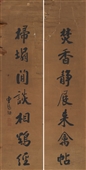 焚香靜展來禽帖
掃榻閒談相鶴經